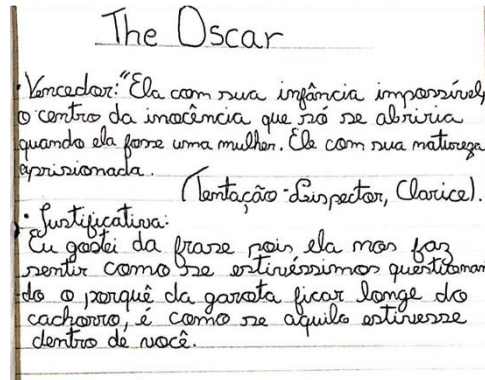 The Oscar
• Vencedor: "Ela com sua infância impossível,
o centro da inocência que só se abriria
quando ela fosse uma mulher. Ele com sua natureza
aprisionada.
(Tentação - Lispector, Clarice).
• Justificativa:
Eu gostei da frase pois ela nos faz
sentir como se estivéssimos questionan
do o porquê da garota ficar longe do
cachorro, é como se aquilo estivesse
dentro de você.